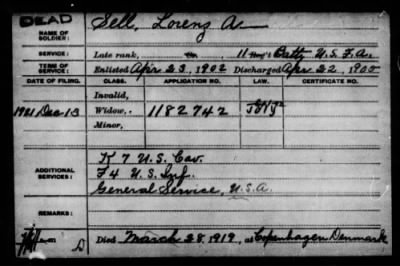 DEAD
NAME OF SOLDIER: Sell, Lorenz A.
SERVICE: Late rank, 11 Batty U.S.F.A.
TERM OF SERVICE: Enlisted Apr 23, 1902 Discharged Apr 22, 1905
DATE OF FILING. CLASS. APPLICATION NO. LAW. CERTIFICATE NO.
Invalid,
1921 Dec 13 Widow, 1182742
Minor,
ADDITIONAL SERVICES: K 7 U.S. Cav.
F 4 U.S. Inf.
General Service, U.S.A.
REMARKS:
Died March 28 1919, at Copenhagen Denmark